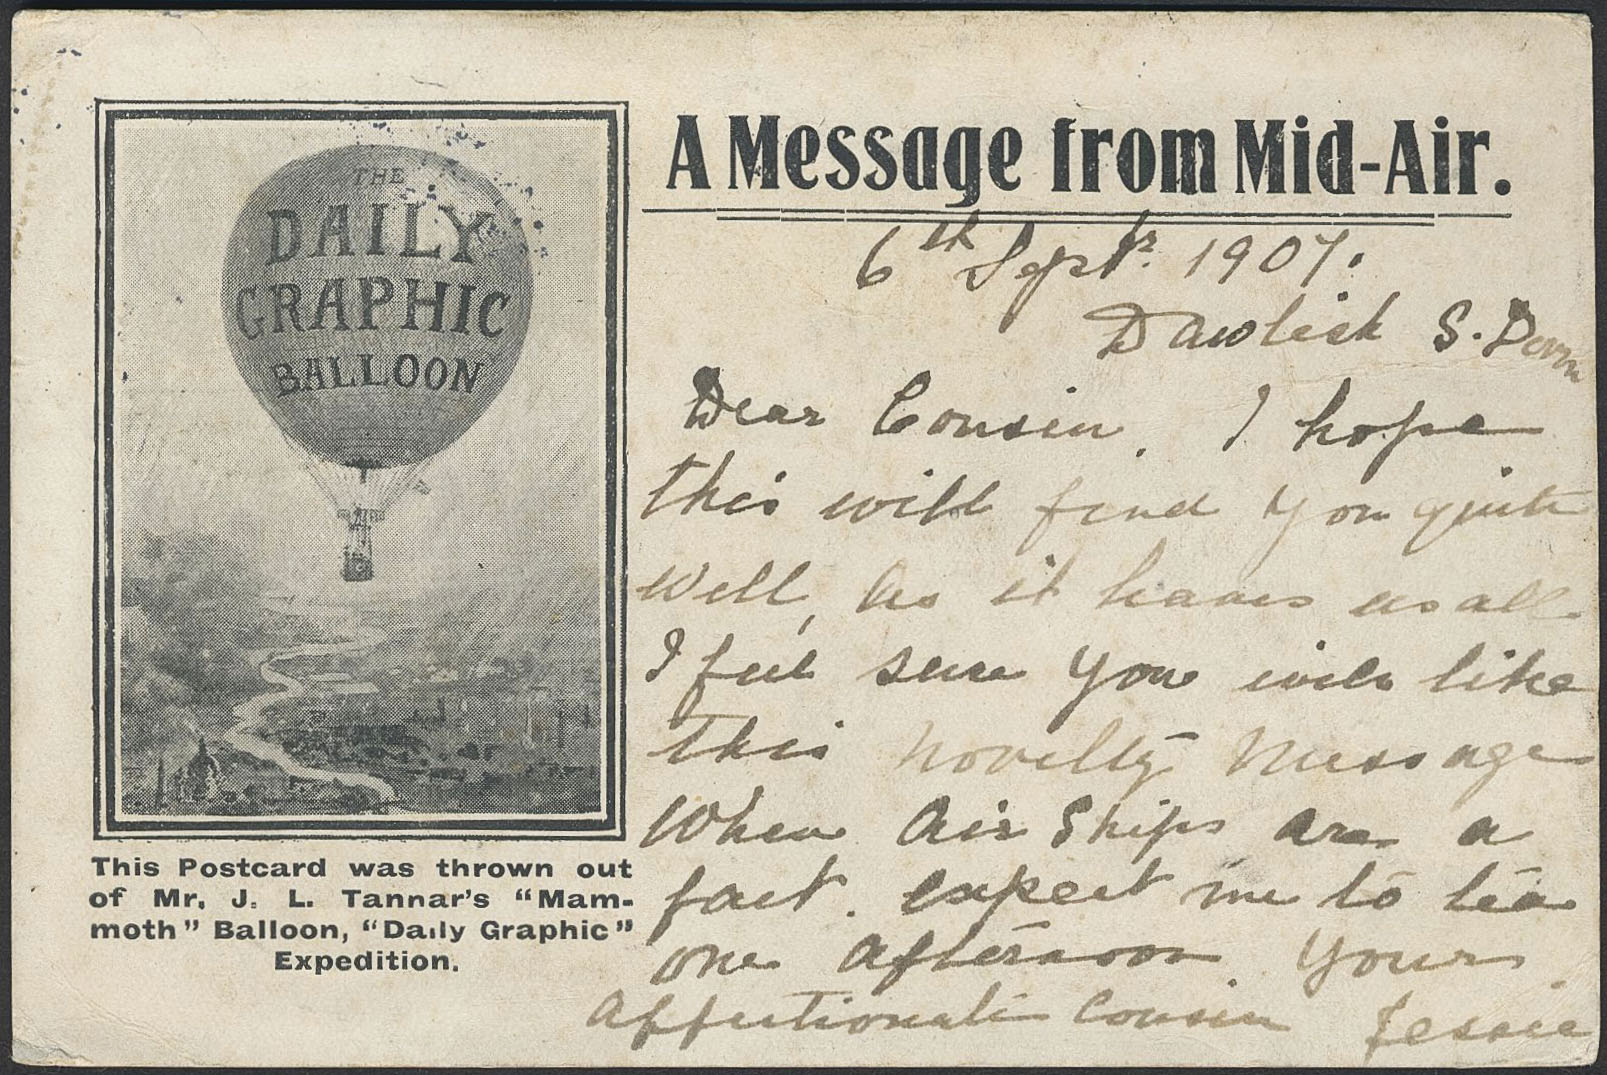 THE
DAILY
GRAPHIC
BALLOON
This Postcard was thrown out
of Mr. J. L. Tannar's "Mam-
moth" Balloon, "Daily Graphic"
Expedition.
A Message from Mid-Air.
6th Septr. 1907.
Dawlish S. Devon
Dear Cousin. I hope
this will find you quite
well, as it leaves us all.
I feel sure you will like
this novelty message
When Air Ships are a
fact. expect me to tea
one afternoon. Yours
affectionate Cousin Jessie